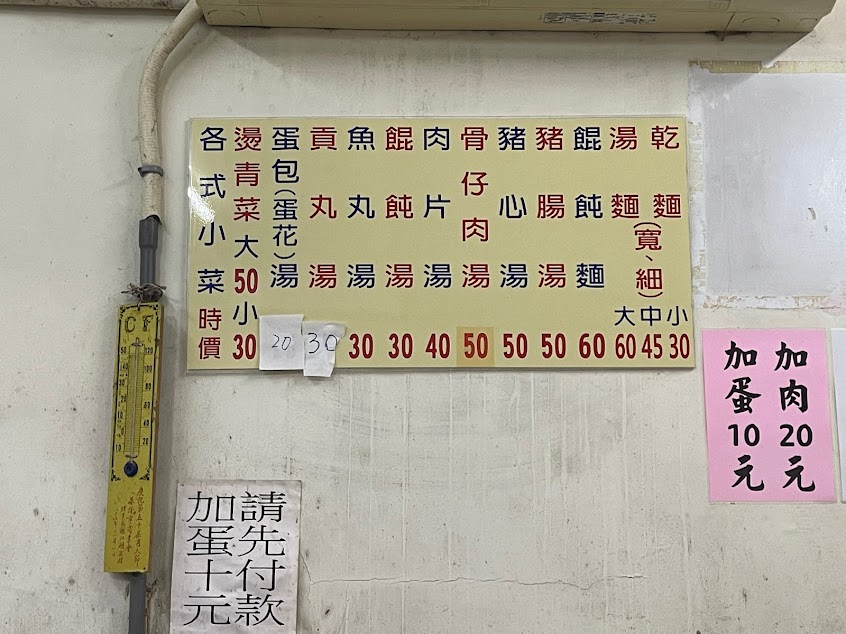 乾麵
湯麵
(寬、細)
大中小
60 45 30
餛飩麵 60
豬腸湯 50
豬心湯 50
骨仔肉湯 50
肉片湯 40
餛飩湯 30
魚丸湯 30
貢丸湯 30
蛋包(蛋花)湯 20
燙青菜大50小30
各式小菜時價
加肉20元
加蛋10元
請先付款
加蛋十元
C F